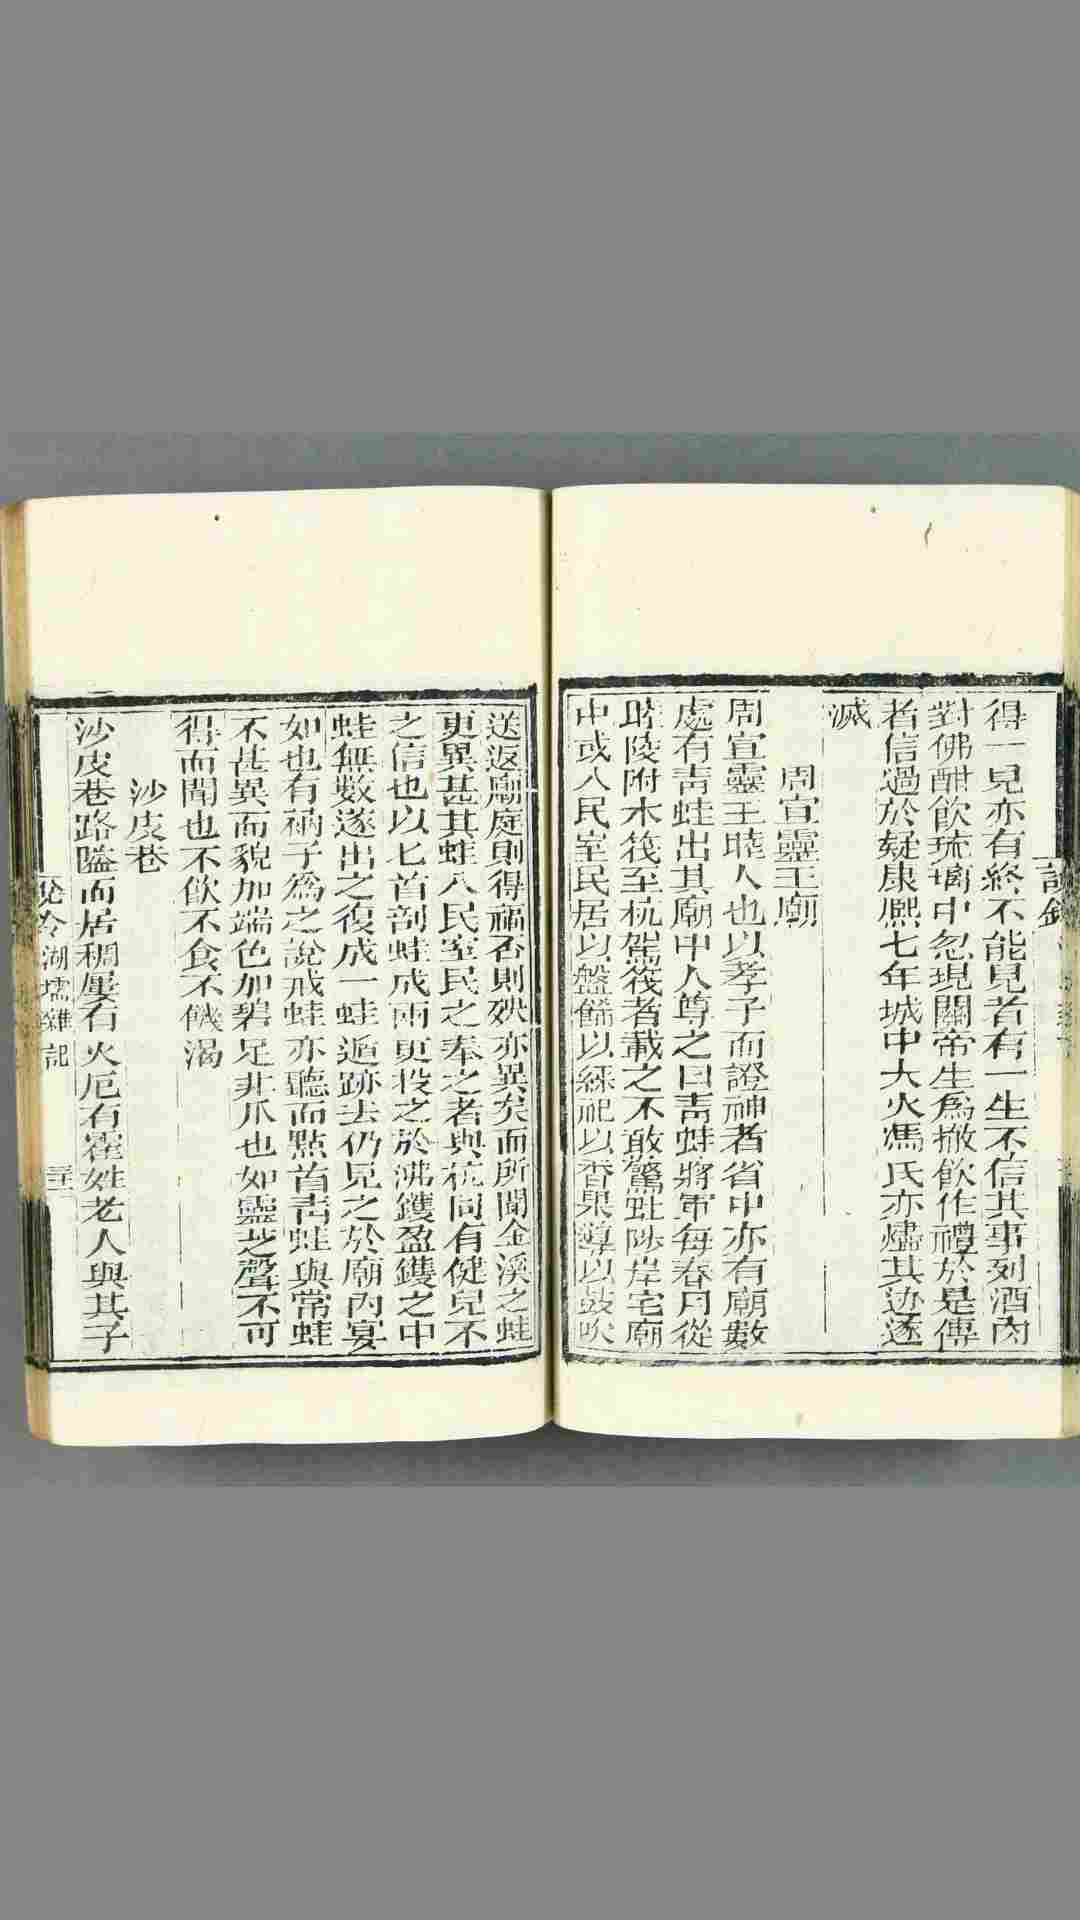 得一見亦有終不能見者有一生不信其事列酒肉
對佛酣飲琉璃中忽現關帝生為撤飲作禮於是傳
者信過於疑康熙七年城中大火馮氏亦燼其迹遂
滅
周宣靈王廟
周宣靈王睦人也以孝子而證神者省中亦有廟數
處有靑蛙出其廟中人尊之曰靑蛙將軍每春月從
睦陵附木筏至杭駕筏者載之不敢驚虵陟岸宅廟
中或入民室民居以盤餙以綵祀以香果導以鼓吹
送返廟庭則得福否則殃亦異矣而所聞金溪之蛙
更異甚其蛙入民室民之奉之者與杭同有健兒不
之信也以匕首剖蛙成兩更投之於沸鑊盈鑊之中
蛙無數遂出之復成一蛙遁跡去仍見之於廟內宴
如也有衲子為之說戒蛙亦聽而點首靑蛙與常蛙
不甚異而貌加端色加碧足非爪也如靈芝聲不可
得而聞也不飲不食不饑渴
沙皮巷
沙皮巷路隘而居稠屢有火厄有霍姓老人與其子
湖壖雜記